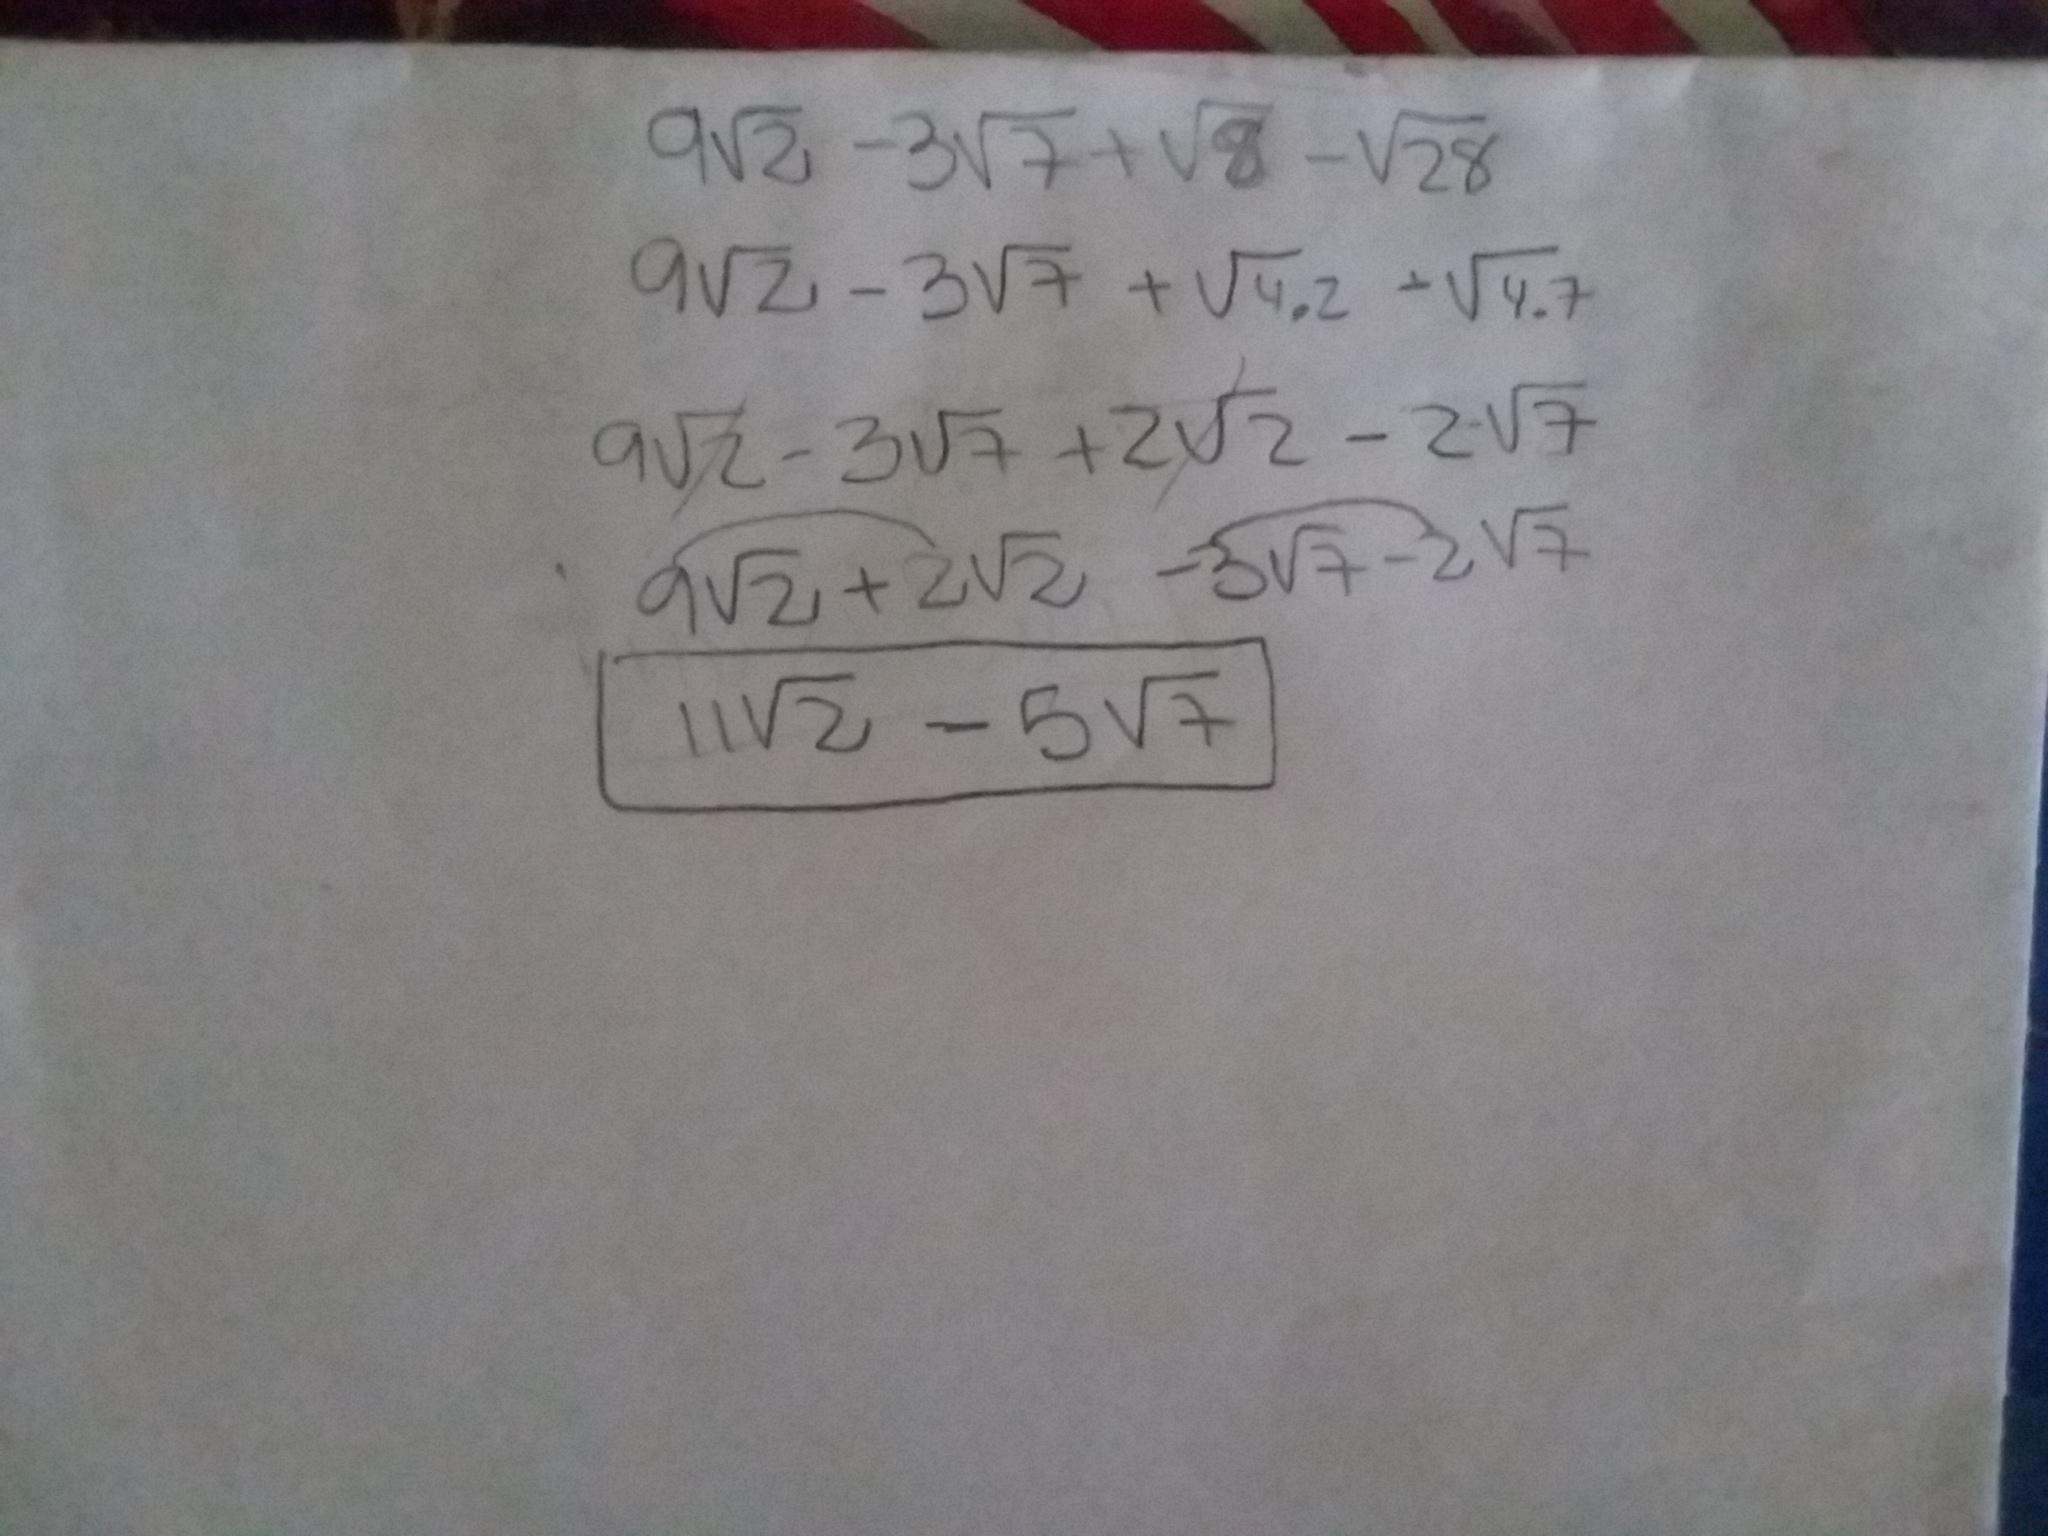 9√2 - 3√7 + √8 - √28
9√2 - 3√7 + √4.2 - √4.7
9√2 - 3√7 + 2√2 - 2√7
9√2 + 2√2 - 3√7 - 2√7
11√2 - 5√7